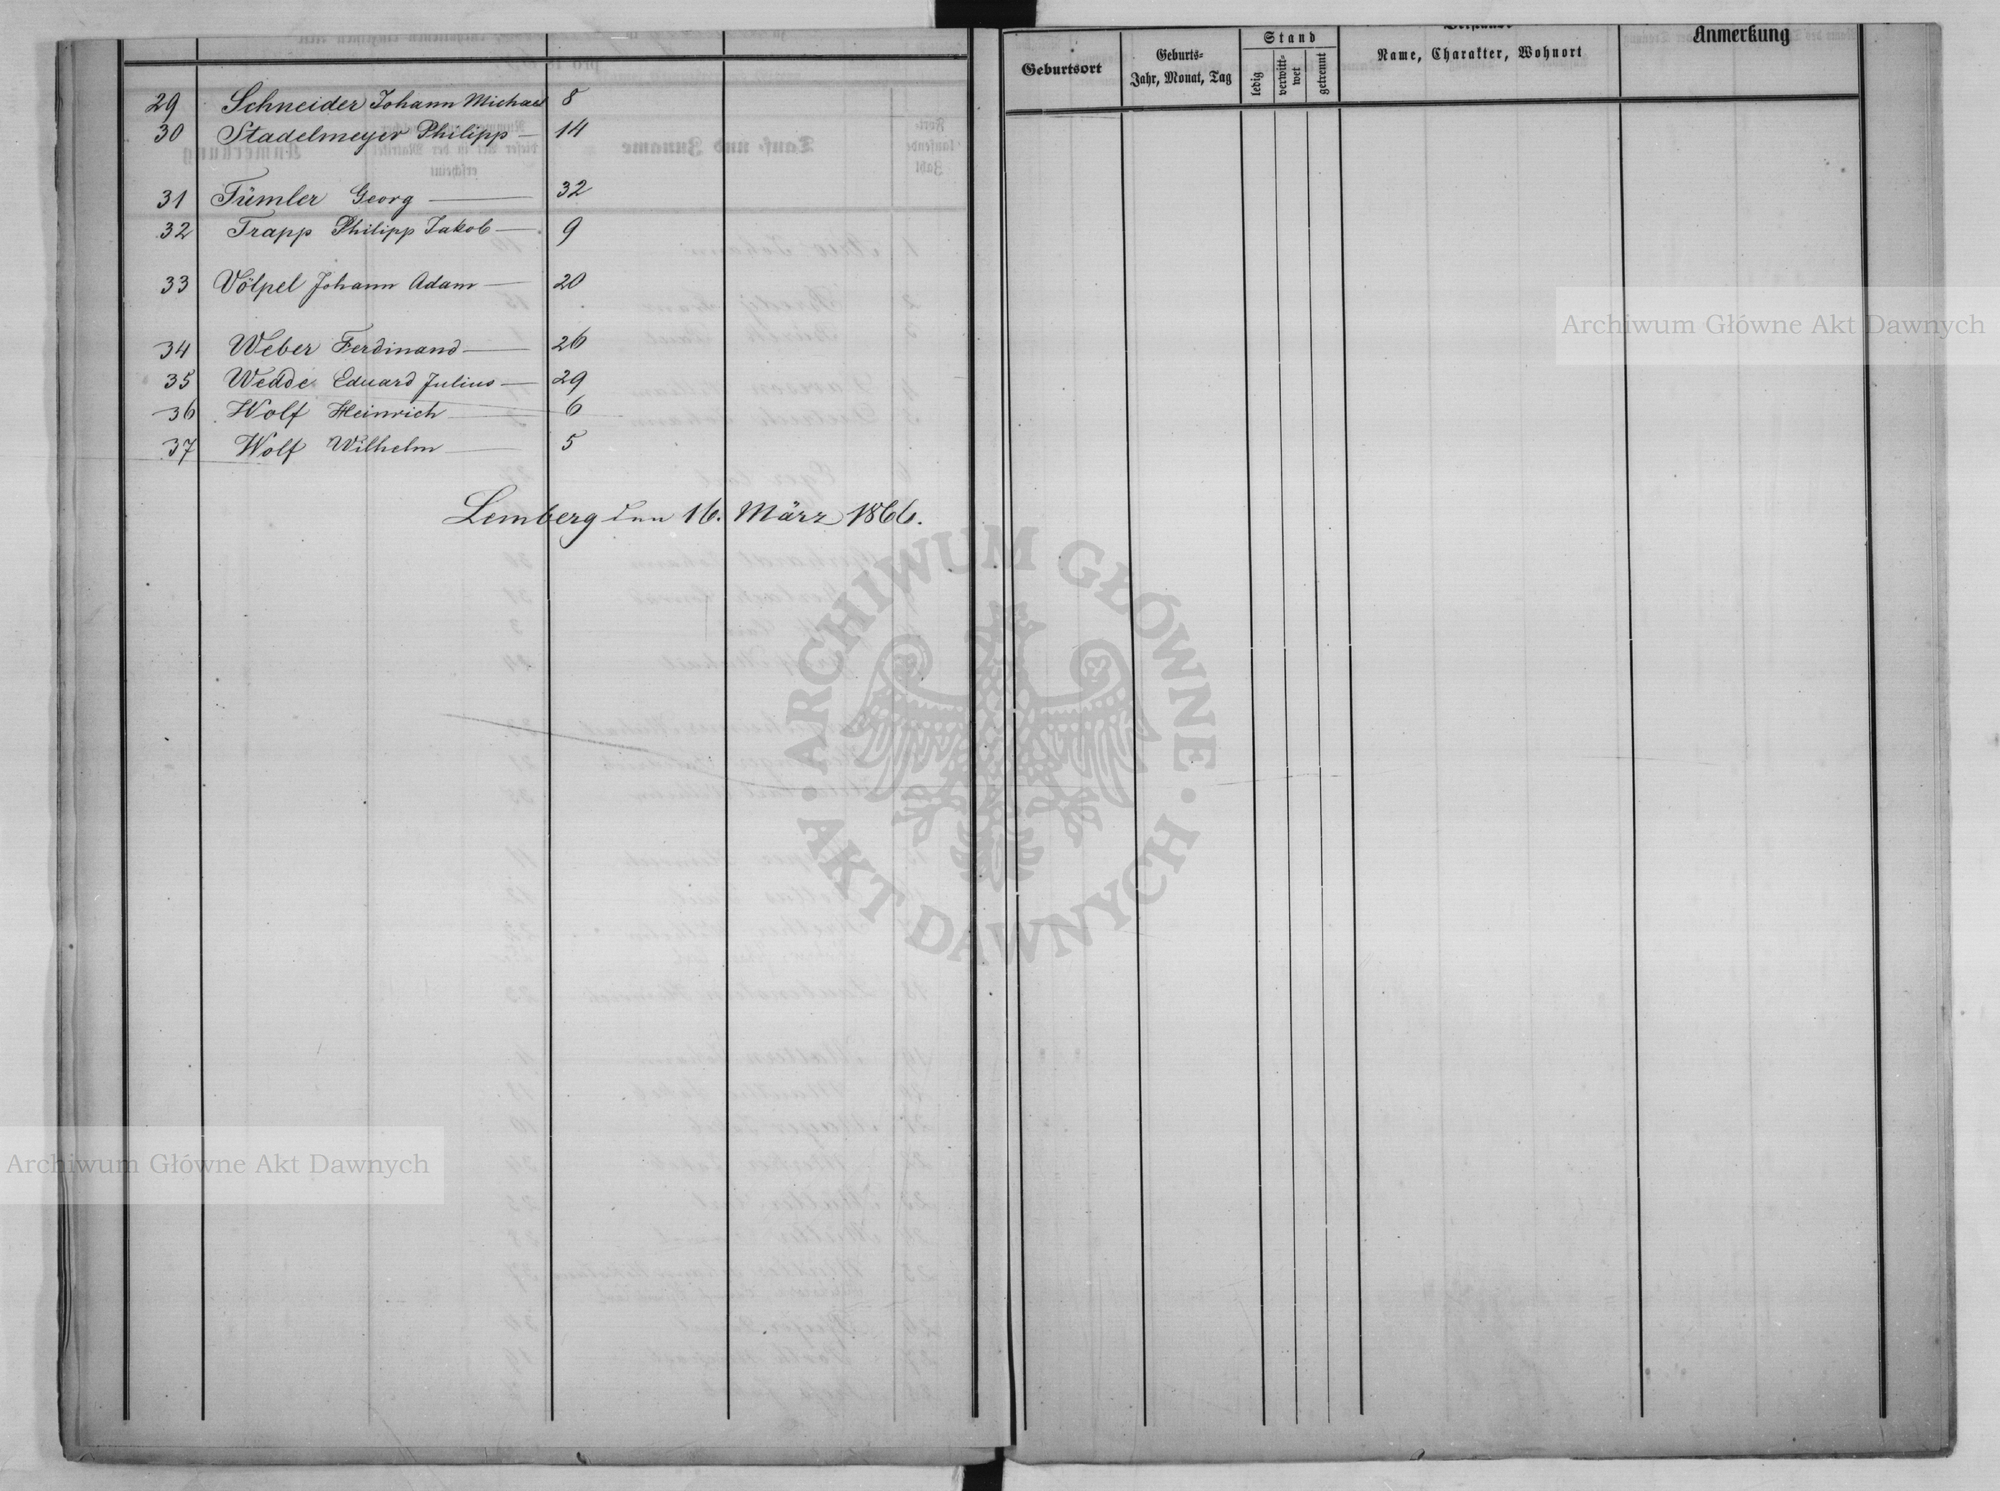 29 Schneider Johann Michael 8
30 Stadelmeyer Philipp — 14
31 Tümler Georg — 32
32 Trapp Philipp Jakob — 9
33 Völpel Johann Adam — 20
34 Weber Ferdinand — 26
35 Wedde Eduard Julius — 29
36 Wolf Heinrich — 6
37 Wolf Wilhelm — 5
Lemberg den 16. März 1866.
Geburtsort
Geburts-
Jahr, Monat, Tag
Stand
ledig
verwitt-
wet
getrennt
Name, Charakter, Wohnort
Anmerkung
Archiwum Główne Akt Dawnych
ARCHIWUM GŁÓWNE · AKT DAWNYCH ·
Archiwum Główne Akt Dawnych